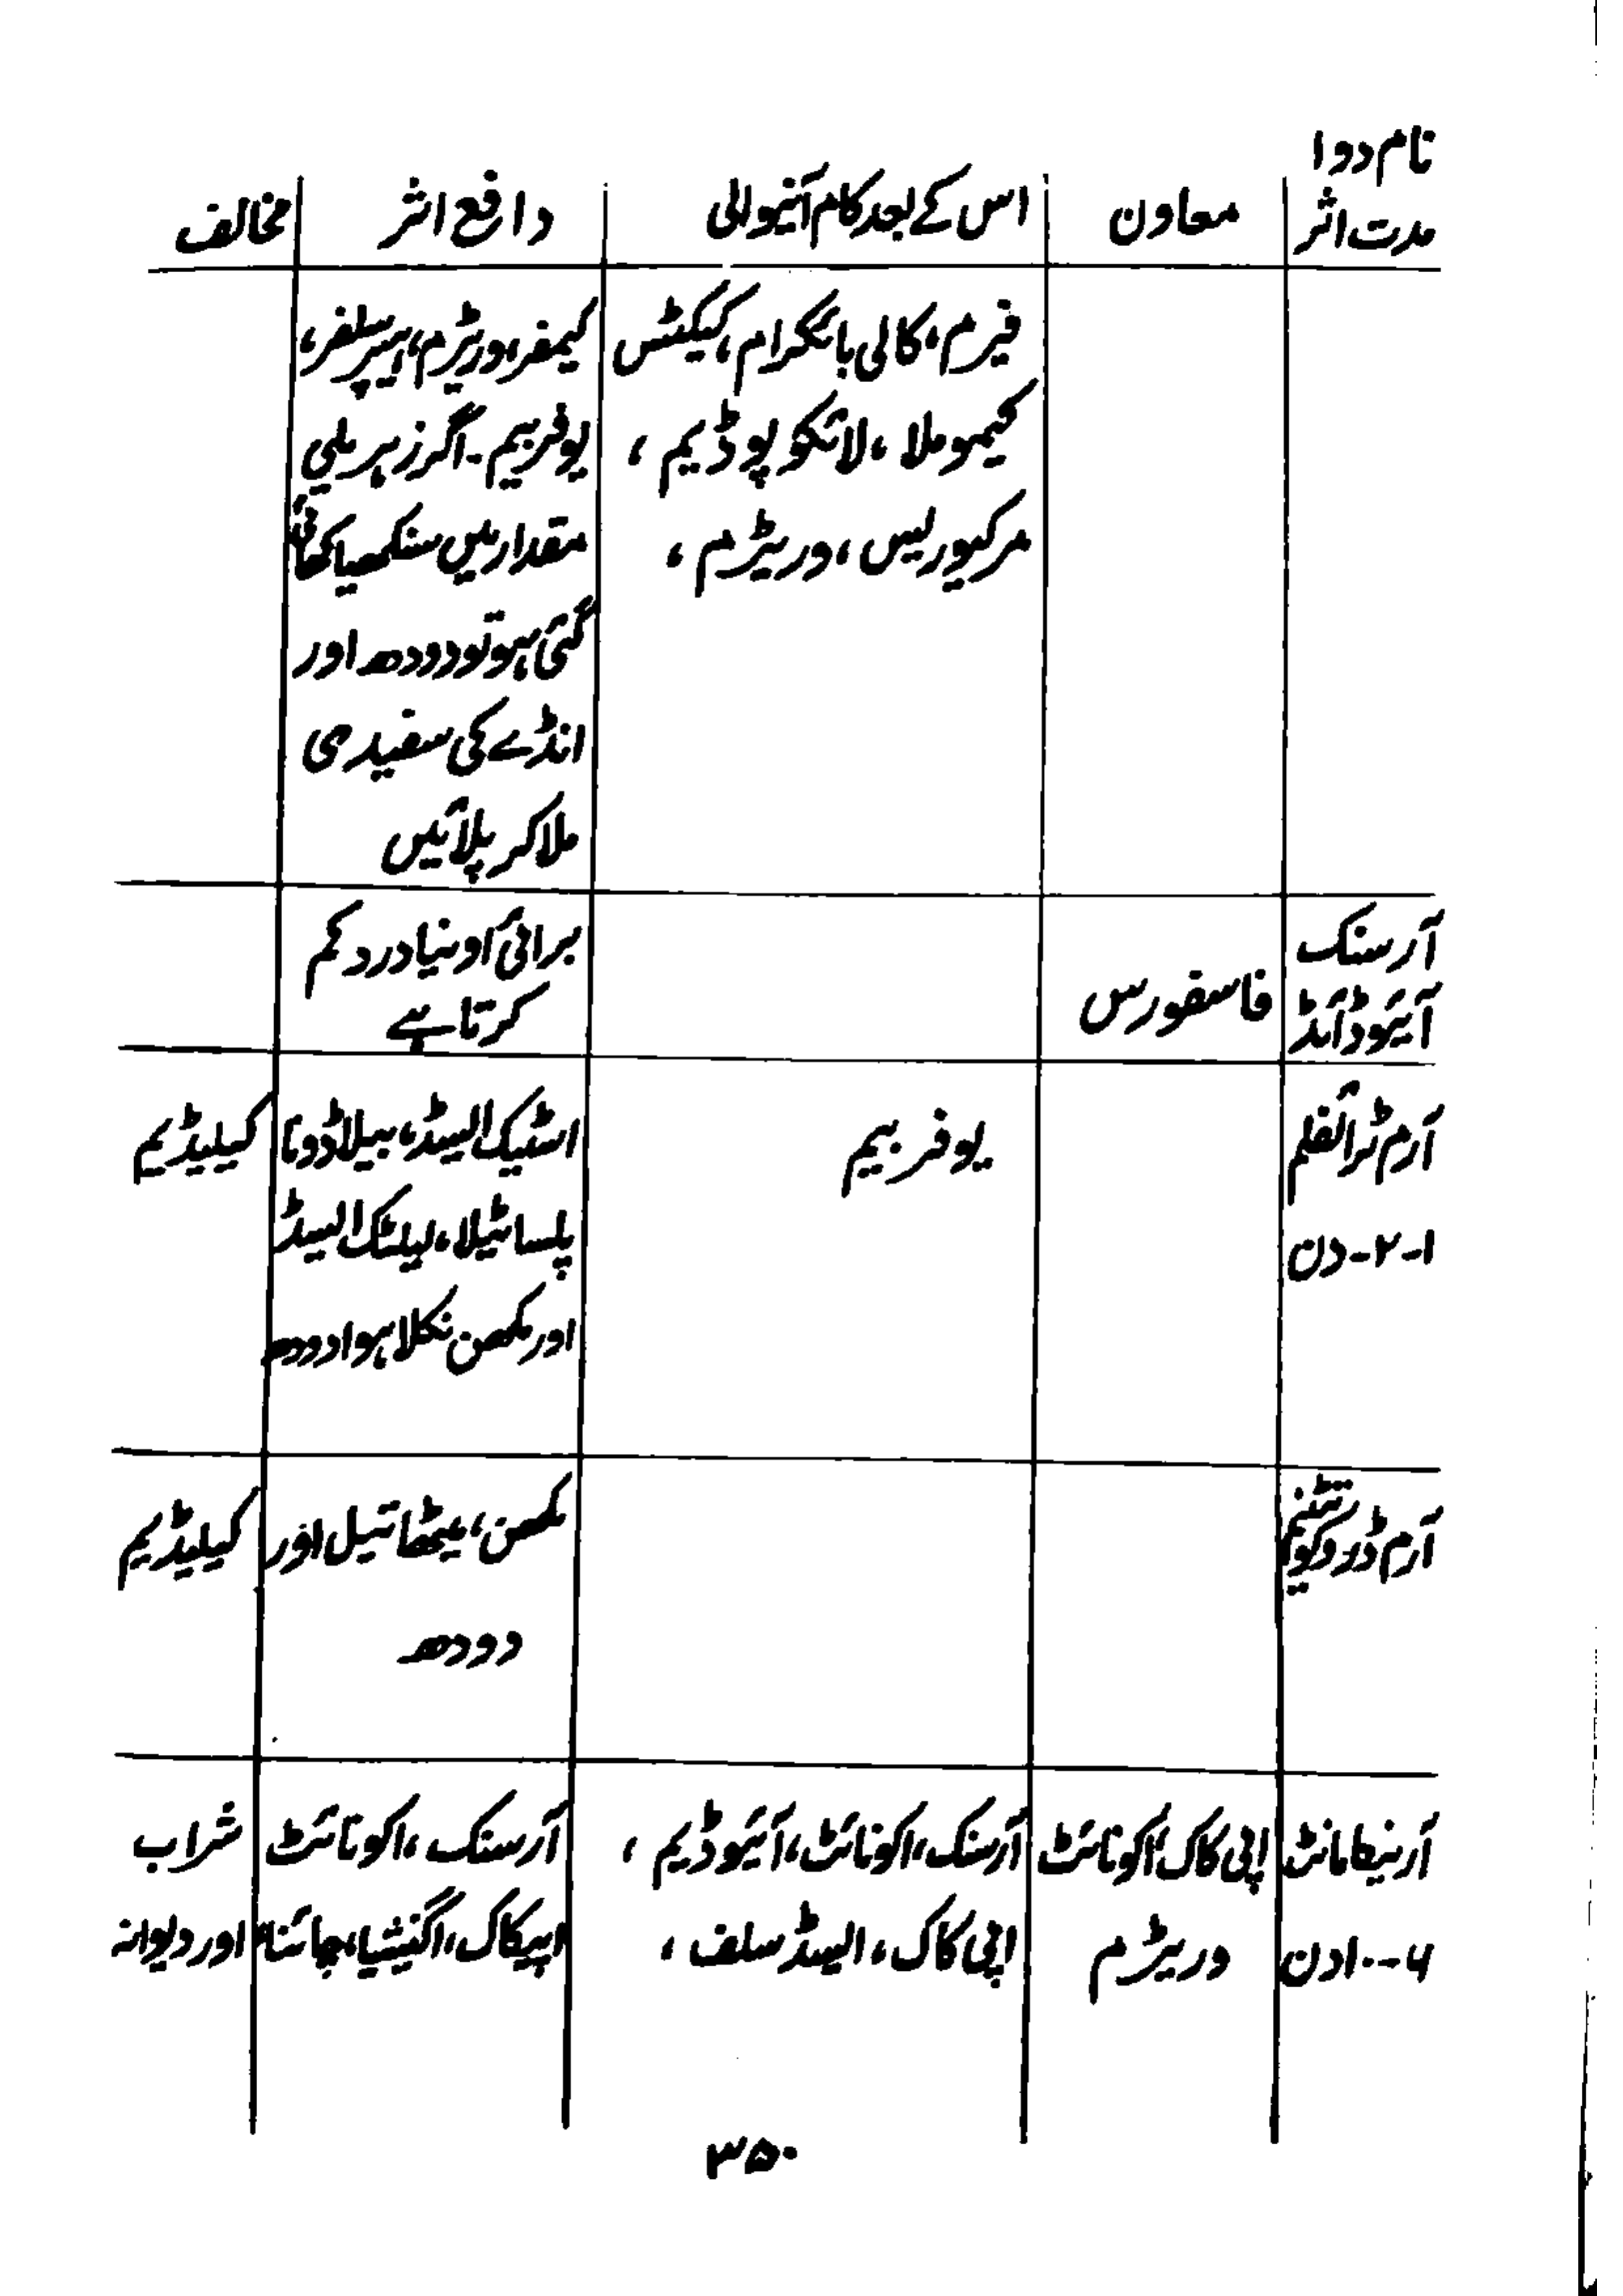 نام دوا
مدت اثر
معاون
اس کے بعد کام آنیوالی
دافع اثر
مخالف
فیرم، کالی بائیکرام، کیکٹس
کیمو ملا، لائیکو پوڈیم،
مرکیوریس، وریٹرم،
کیمفر، وریٹرم، ہیپر سلفر،
یوفربیم - اگر زہریلی
مقدار میں سنکھیا کھائی
گئی ہو تو دودھ اور
انڈے کی سفیدی
ملا کر پلائیں
آرسنک
آئیوڈائڈ
فاسفورس
برائی آونیا درد کم
کرتا ہے
آرم ٹرائفلم
۱-۲- دن
یوفر بیم
اسٹیک ایسڈ، بیلاڈونا
پلساٹیلا، لیکٹک ایسڈ
اور مکھن نکلا ہوا دودھ
کیلیڈیم
آرم
مکھن، میٹھا تیل اور
دودھ
کیلیڈیم
آرنیکا مانٹ
۶-۱۰ دن
اپی کاک، اکونائٹ
وریٹرم
آرسنک، اکونائٹ، آئیوڈیم،
اپی کاک، ایسڈ سلف،
آرسنک، اکونائٹ
اپیکاک، اگنیشیا، چائنا،
شراب
اور دیوانہ
۳۵۰